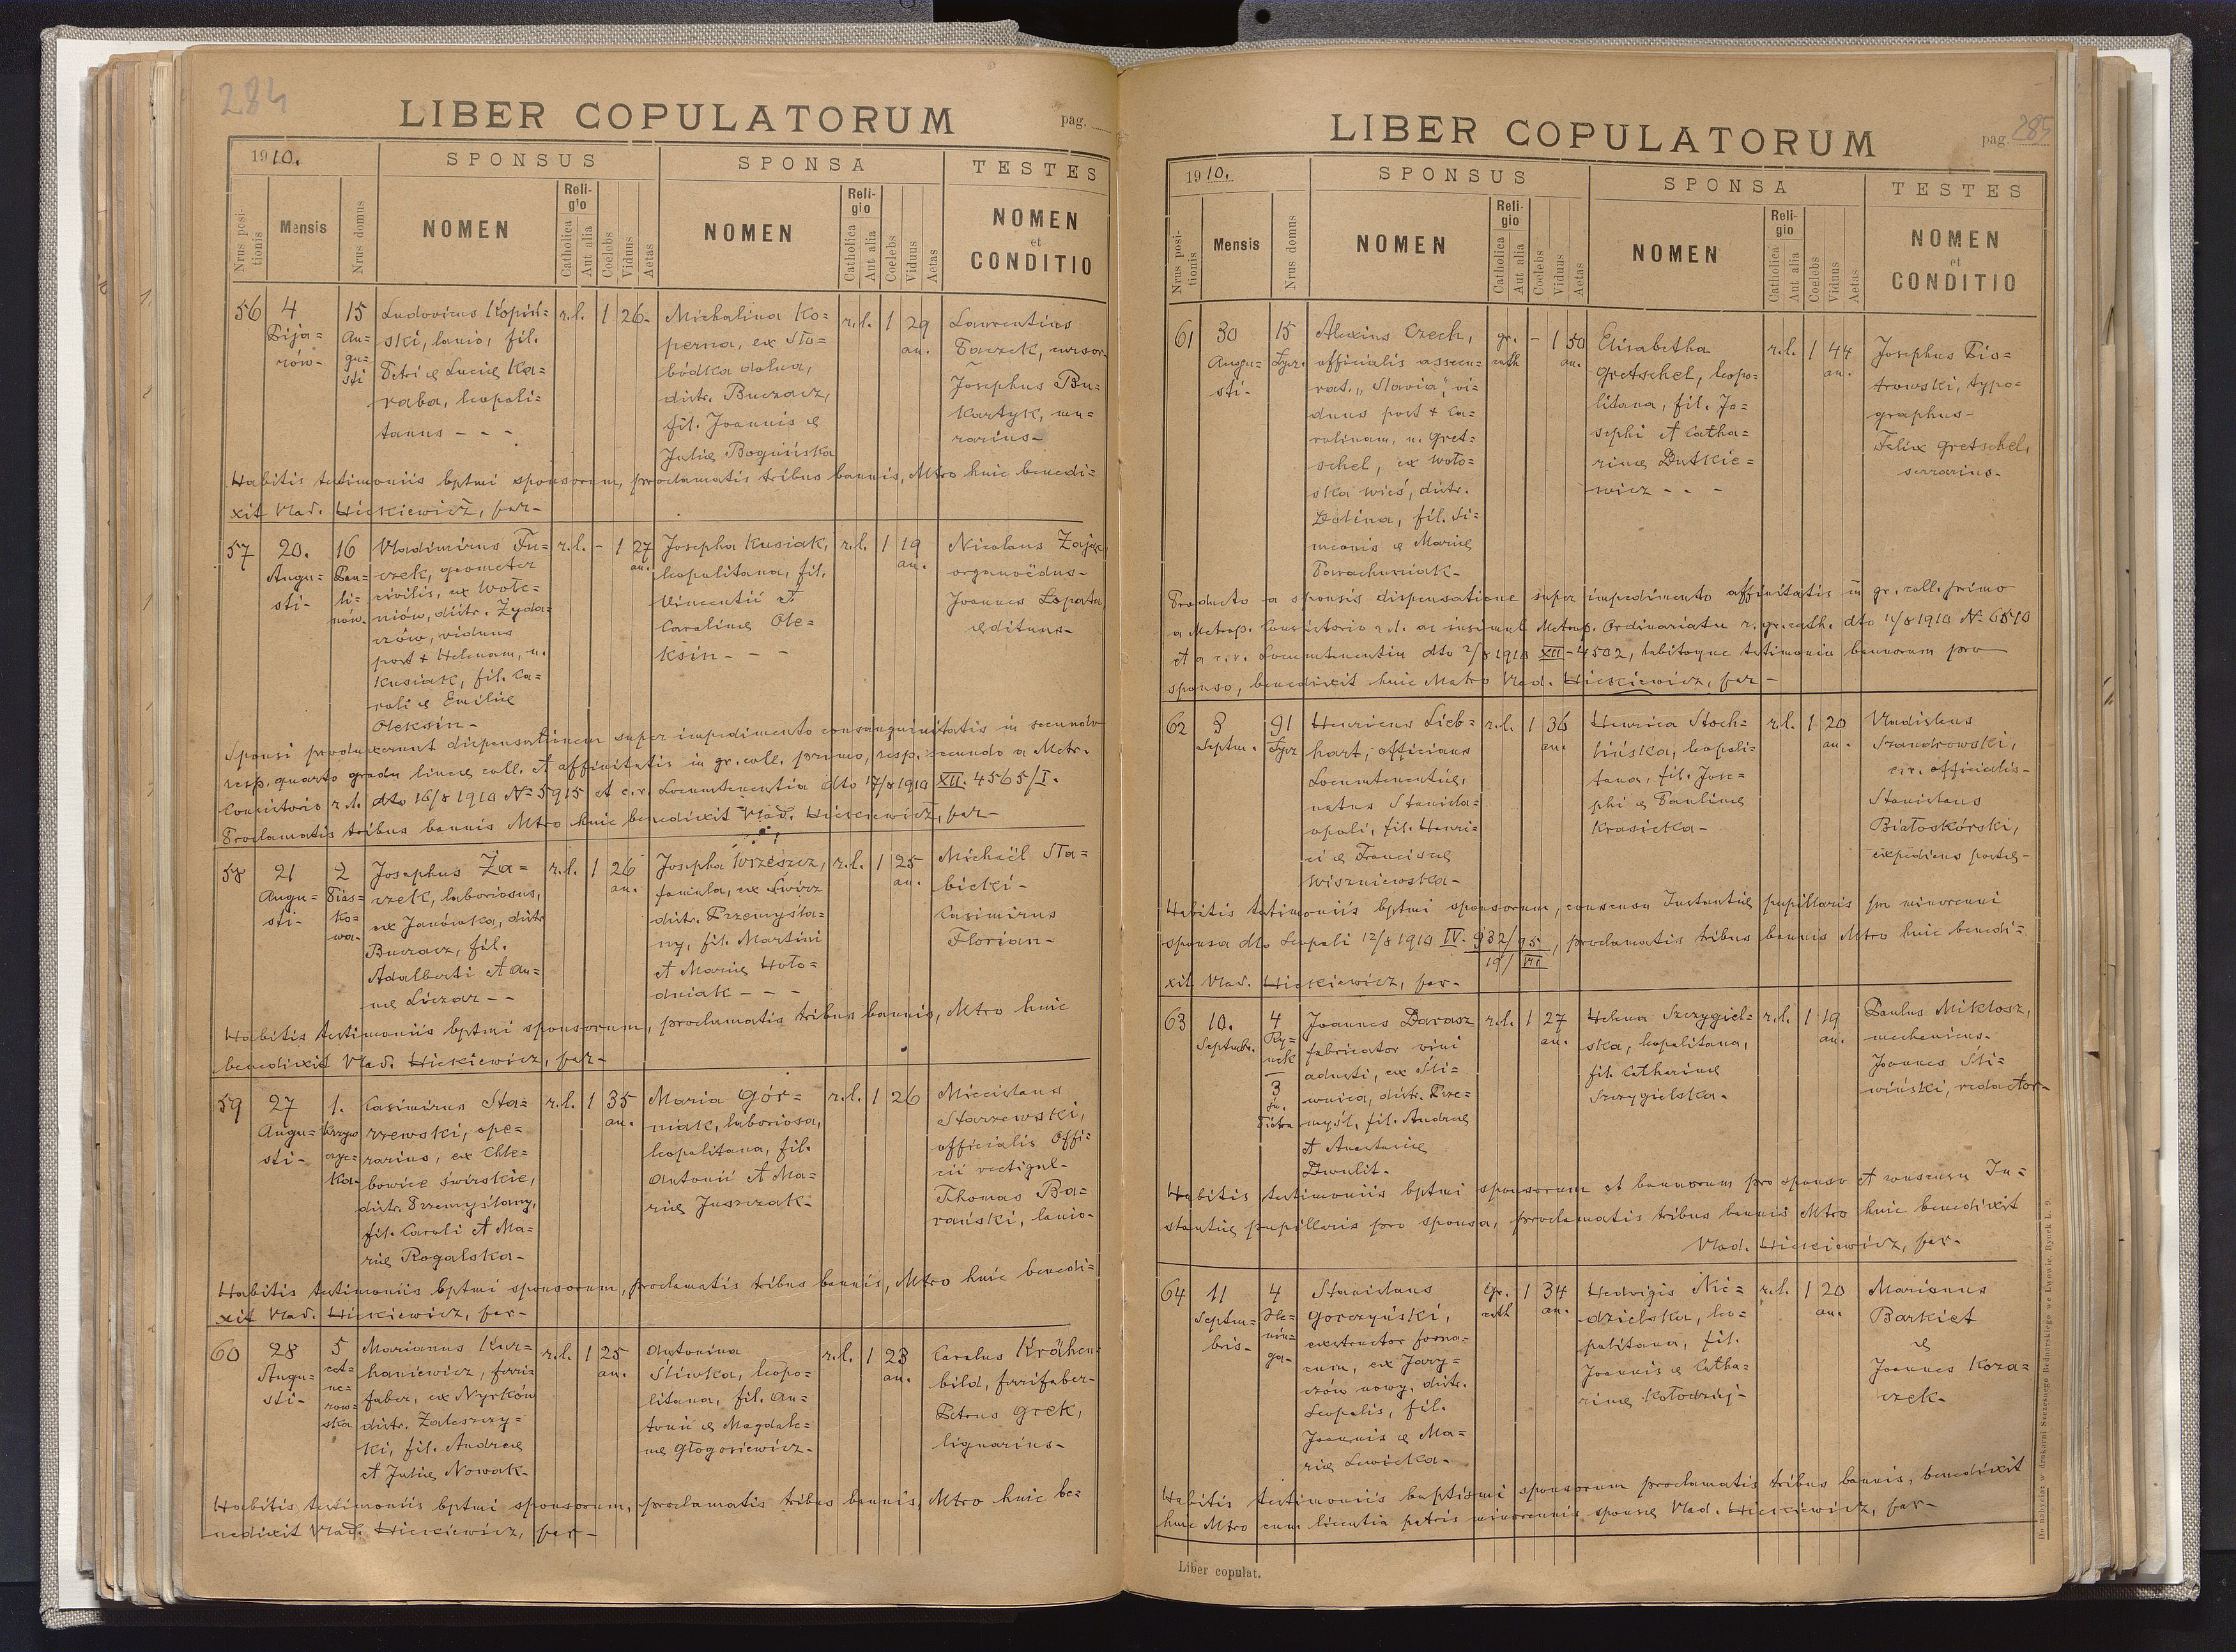 284
LIBER COPULATORUM
pag.
1910.
SPONSUS
SPONSA
TESTES
Nrus positionis
Mensis
Nrus domus
NOMEN
Religio
Catholica
Aut alia
Coelebs
Viduus
Aetas
NOMEN
Religio
Catholica
Aut alia
Coelebs
Viduus
Aetas
NOMEN
et
CONDITIO
56
4
15
Au=
gu=
sti
Ludovicus Kopiń=
ski, lanio, fil.
Petri & Luciæ Ka=
raba, leopoli=
tanus - - -
r.l. 1 26.
Michalina Ko=
perna, ex Sło=
bódka dolna,
distr. Buczacz,
fil. Joannis &
Juliæ Bogińska
r.l. 1 29
an.
Laurentius
Paczek, cursor
Josephus Bu=
kartyk, mu=
rarius-
Habitis testimoniis bptmi sponsorum, proclamatis tribus bannis, Mtro huic benedi=
xit Vlad. Hickiewicz, par-
57
20.
Augu=
sti-
16
Vladimirus Fu=
czek, geometer
civilis, ex Wołc=
niów, distr. Żyda=
czów, viduus
post + Helenam, n.
Kusiak, fil. Ca=
roli & Emiliæ
Oleksin-
r.l. - 1 27
an.
Josepha Kusiak,
leopolitana, fil.
Vincentii et
Carolinæ Ole=
ksin - - -
r.l. 1 19
an.
Nicolaus Zając
organoëdus-
Joannes Łopata
ædituus-
Sponsi produxerunt dispensationem super impedimento consanguinitatis in secundo
resp. quarto gradu lineæ coll. et affinitatis in gr. coll. primo, resp. secundo a Metr.
Consistorio r.l. dto 16/8 1910 No 5915 et c.r. Locumtenentia dto 17/8 1910 XII. 4565/I.
Proclamatis tribus bannis Mtro huic benedixit Vlad. Hickiewicz, par-
58
21
Augu=
sti-
2
Pias=
ko=
wa-
Josephus Ża=
czek, laboriosus,
ex Janówka, distr
Buczacz, fil.
Adalberti et An=
næ Liczar - -
r.l. 1 26
an.
Josepha Wrzeszcz,
famula, ex Świrz
distr. Przemyśla=
ny, fil. Martini
et Mariæ Woło=
dniak - - -
r.l. 1 25
an.
Michaël Sta=
bicki-
Casimirus
Florian-
Habitis testimoniis bptmi sponsorum, proclamatis tribus bannis, Mtro huic
benedixit Vlad. Hickiewicz, par-
59
27
Augu=
sti-
1.
Krzywo
czyc=
ka-
Casimirus Sta=
rzewski, ope=
rarius, ex Chle=
bowice świrskie,
distr. Przemyślany,
fil. Caroli et Ma=
riæ Rogalska-
r.l. 1 35
an.
Maria Gór=
niak, laboriosa,
leopolitana, fil.
Antonii et Ma=
riæ Juszczak-
r.l. 1 26
Miecislaus
Starzewski,
officialis Offi=
cii vectigal-
Thomas Ba=
rański, lanio-
Habitis testimoniis bptmi sponsorum, proclamatis tribus bannis, Mtro huic benedi=
xit Vlad. Hickiewicz, par-
60
28
Augu=
sti-
5
Marianus Kur=
haniewicz, ferri=
faber, ex Nyrków
distr. Zaleszczy=
ki, fil. Andreæ
et Juliæ Nowak-
r.l. 1 25
an.
Antonina
Śliwka, leopo=
litana, fil. An=
tonii & Magdale=
næ Głogosiewicz-
r.l. 1 23
an.
Carolus Krähen=
bild, ferrifaber-
Petrus Grek,
lignarius-
Habitis testimoniis bptmi sponsorum, proclamatis tribus bannis, Mtro huic be=
nedixit Vlad. Hickiewicz, par-
LIBER COPULATORUM
pag. 285
1910.
SPONSUS
SPONSA
TESTES
Nrus positionis
Mensis
Nrus domus
NOMEN
Religio
Catholica
Aut alia
Coelebs
Viduus
Aetas
NOMEN
Religio
Catholica
Aut alia
Coelebs
Viduus
Aetas
NOMEN
et
CONDITIO
61
30
Augu=
sti-
15
Łycz.
Alexius Czech,
officialis assecu=
rat. "Slavia", vi=
duus post + Ca=
rolinam, n. Gret=
schel, ex Woło=
ska wieś, distr.
Dolina, fil. Si=
meonis & Mariæ
Parachuniak-
gr.
cath
- 1 50
an.
Elisabetha
Gretschel, leopo=
litana, fil. Jo=
sephi et Catha=
rinæ Dutkie=
wicz - - -
r.l. 1 44
an.
Josephus Pio=
trowski, typo=
graphus-
Felix Gretschel,
serrarius-
Producto a sponsis dispensatione super impedimento affinitatis in gr. coll. primo
a Metrop. Consistorio r.l. ac insimul Metrop. Ordinariatu r. gr. cath. dto 11/8 1910 No 6510
et a c.r. Locumtenentia dto 2/8 1910 XII-4502, habitoque testimonio bannorum pro
sponso, benedixit huic Matro Vlad. Hickiewicz, par-
62
3
Septm.
91
Łycz
Henricus Lieb=
hart, officians
Locumtenentiæ,
natus Stanisla=
opoli, fil. Henri=
ci & Franciscæ
Wiszniewska-
r.l. 1 36
an.
Henrica Stoch=
lińska, leopoli=
tana, fil. Jose=
phi & Paulinæ
Krasicka-
r.l. 1 20
an.
Vladislaus
Szandrowski,
c.r. officialis-
Stanislaus
Białoskórski,
expediens postæ-
Habitis testimoniis bptmi sponsorum, consensu Instantiæ pupillaris pro minorenni
sponsa dto Leopoli 12/8 1910 IV. 932/95
10/ VIII
, proclamatis tribus bannis Mtro huic benedi=
xit Vlad. Hickiewicz, par.-
63
10.
Septmbr.
4
Ry=
nek
3
św.
Piotra
Joannes Darasz
fabricator vini
adusti, ex Śli=
wnica, distr. Prze=
myśl, fil. Andreæ
et Anastasiæ
Dwulit-
r.l. 1 27
an.
Helena Szczygiel=
ska, leopolitana,
fil. Catharinæ
Szczygielska.
r.l. 1 19
an.
Paulus Miklosz,
mechanicus-
Joannes Śli=
wiński, redactor-
Habitis testimoniis bptmi sponsorum et bannorum pro sponso et consensu In=
stantiæ pupillaris pro sponsa, proclamatis tribus bannis Mtro huic benedixit
Vlad. Hickiewicz, par-
64
11
Septem=
bris-
4
Stanislaus
Gorczyński,
exstructor forna=
cum, ex Jary=
czów nowy, distr.
Leopolis, fil.
Joannis & Ma=
riæ Lewicka-
gr.
cath
1 34
an.
Hedvigis Nie=
dzielska, leo=
politana, fil.
Joannis & Catha=
rinæ Kołodziej-
r.l. 1 20
an.
Marianus
Barkiet
&
Joannes Koza=
czek-
Habitis testimoniis baptismi sponsorum proclamatis tribus bannis, benedixit
huic Mtro cum licentia patris minorennis sponsæ Vlad. Hickiewicz, par-
Liber copulat.
Do nabycia w drukarni Szczęsnego Bednarskiego we Lwowie, Rynek l. 9.